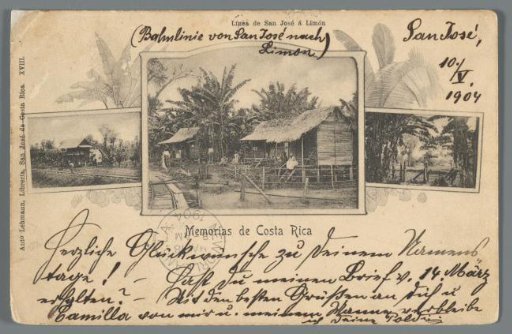 Linea de San José á Limón
(Bahnlinie von San José nach
Limon.)
San José,
10./
V.
1904
Anto Lehmann, Libreria, San José de Costa Rica. XVIII.
Memorias de Costa Rica
Herzliche Glückwünsche zu Deinem Namens
tage! – Hast Du meinen Brief v. 14. März
erhalten? – Mit den besten Grüßen an Dich u.
Camilla von mir u. meinem Manne verbleibe
ich Deine